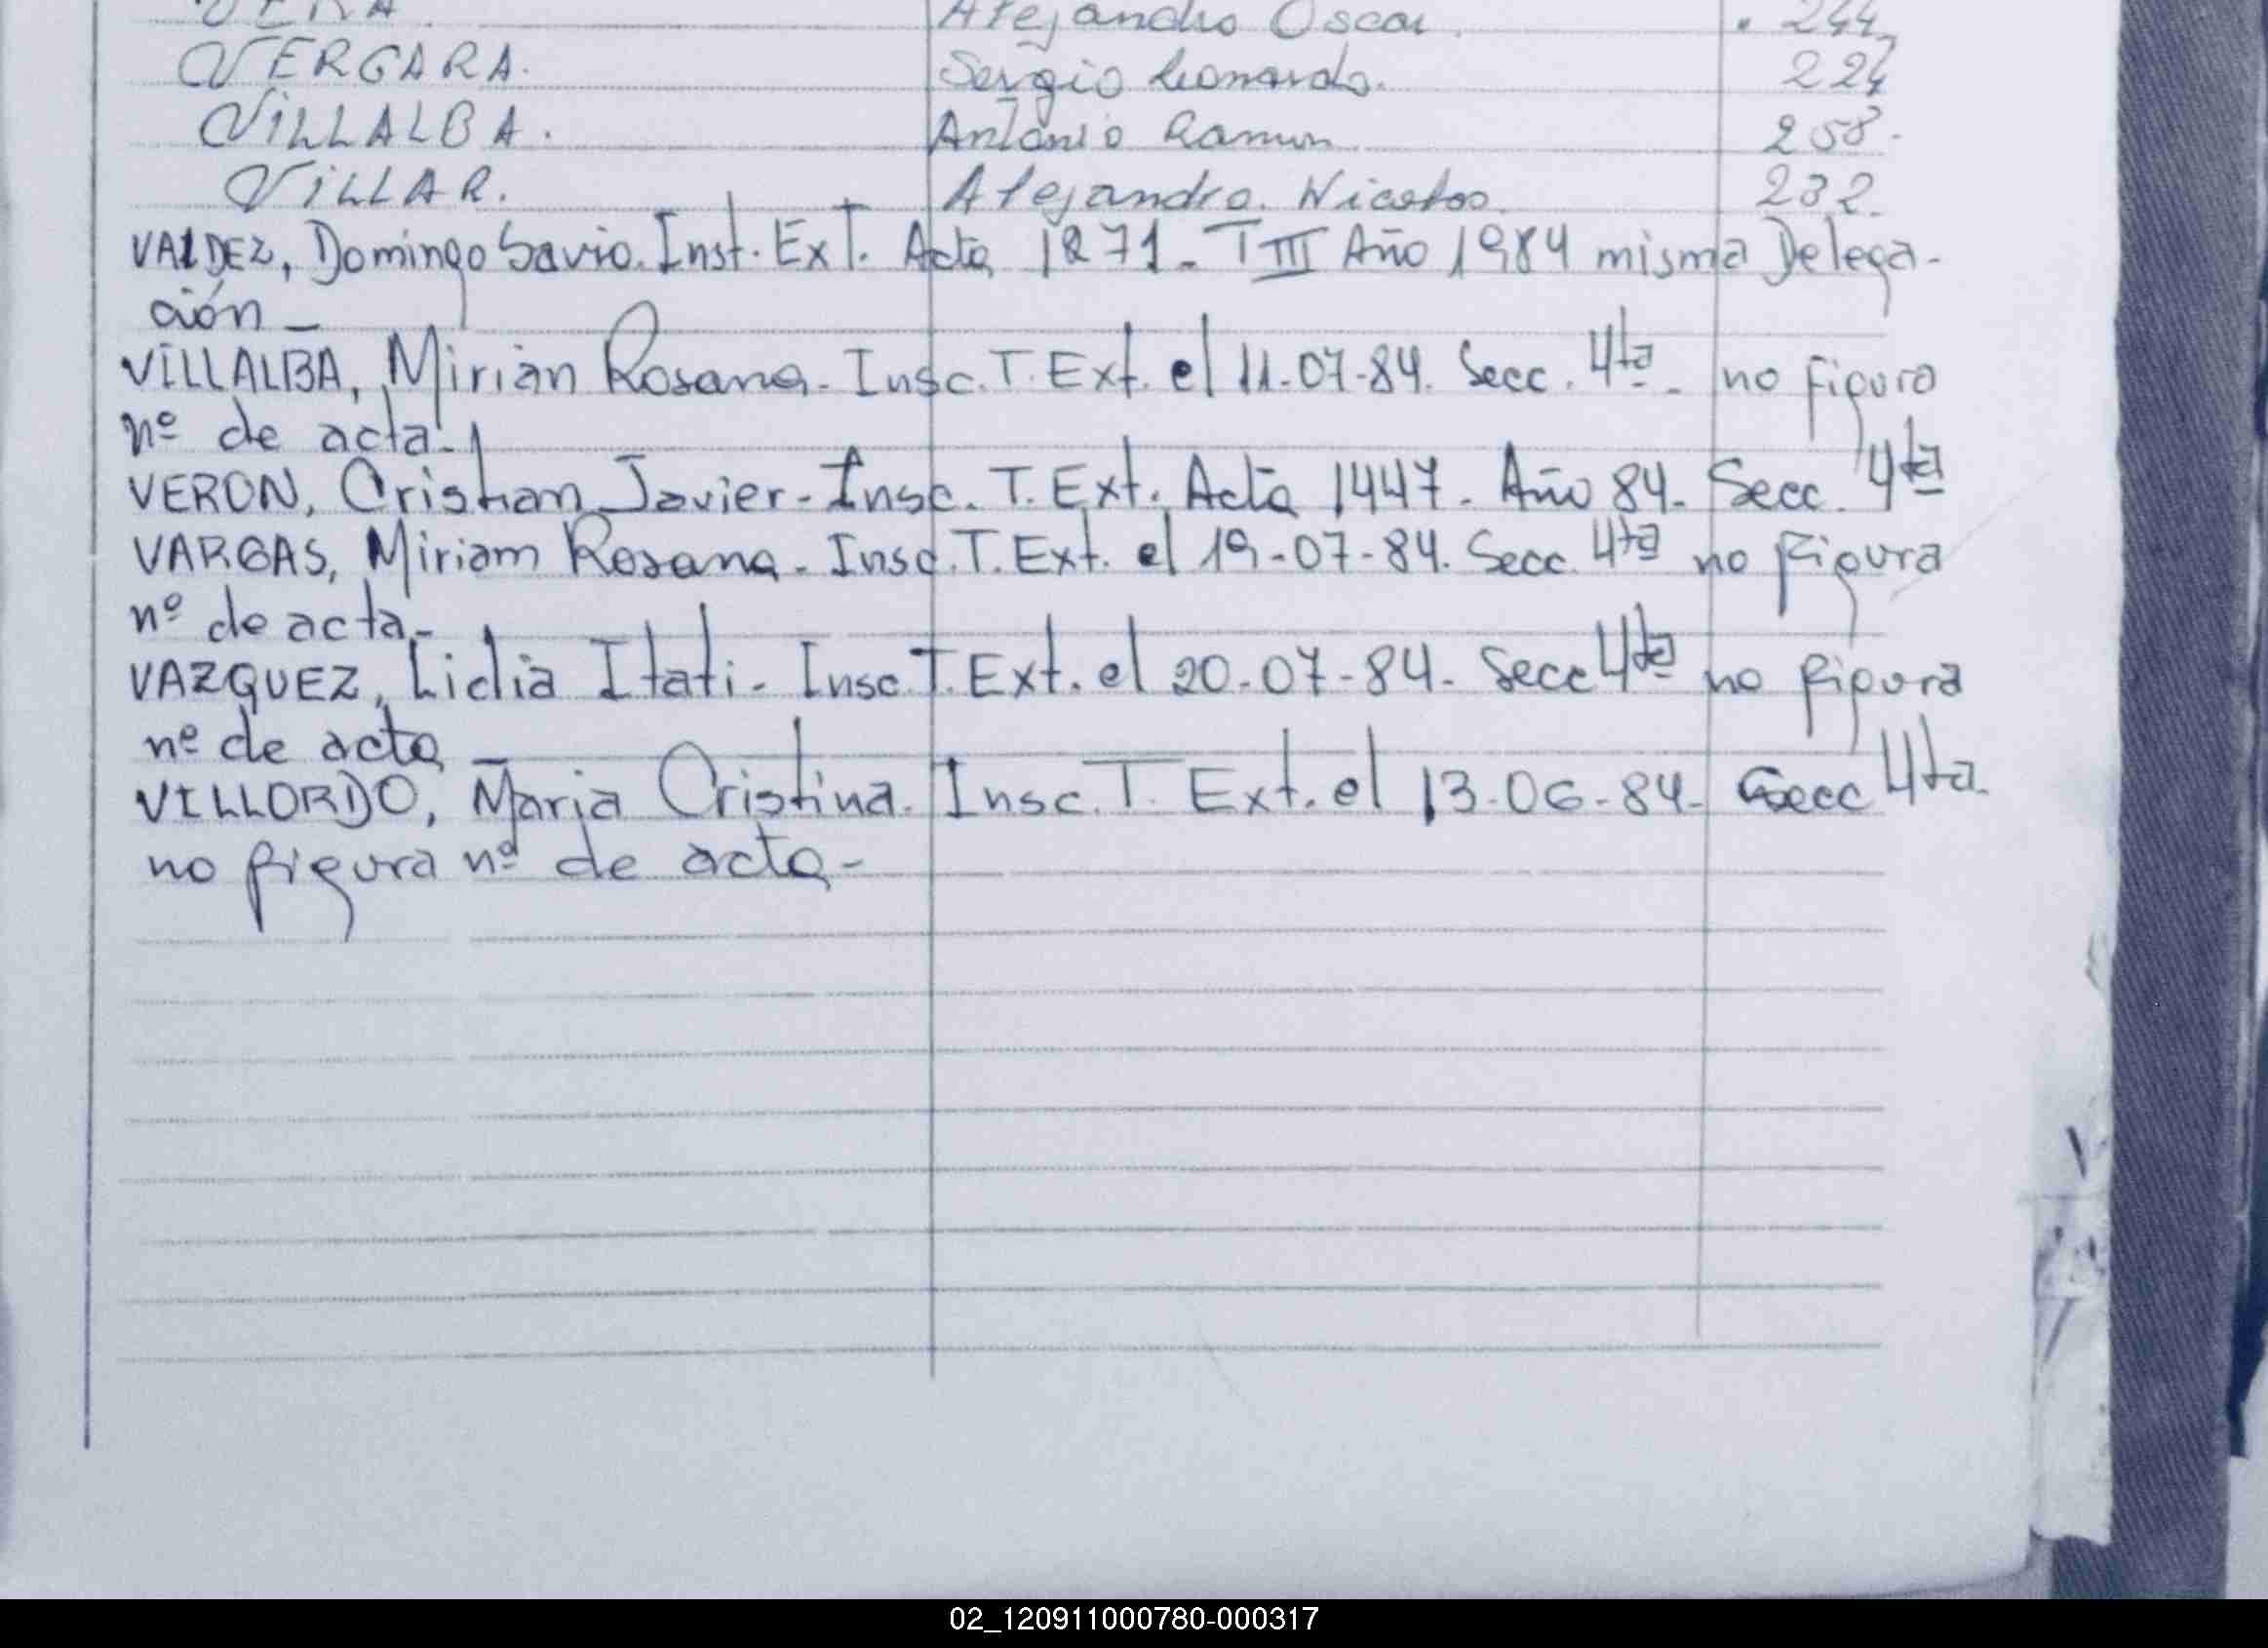 VERA. Alejandro Oscar. . 244
VERGARA. Sergio Leonardo. 224
VILLALBA. Antonio Ramon 258.
VILLAR. Alejandro. Nicolas 232.
VALDEZ, Domingo Savio. Inst. Ext. Acta 1271 - T III Año 1984 misma Delega-
ción -
VILLALBA, Mirian Rosana - Insc. T. Ext. el 11-07-84. Secc. 4ta - no figura
nº de acta -
VERON, Cristian Javier - Insc. T. Ext. Acta 1447. Año 84 - Secc. 4ta
VARGAS, Miriam Rosana - Insc. T. Ext. el 19-07-84. Secc. 4ta no figura
nº de acta -
VAZQUEZ, Lidia Itati - Insc T. Ext. el 20-07-84 - Secc 4ta no figura
nº de acta -
VILLORDO, Maria Cristina. Insc. T. Ext. el 13-06-84 - Secc 4ta.
no figura nº de acta -
02_120911000780-000317